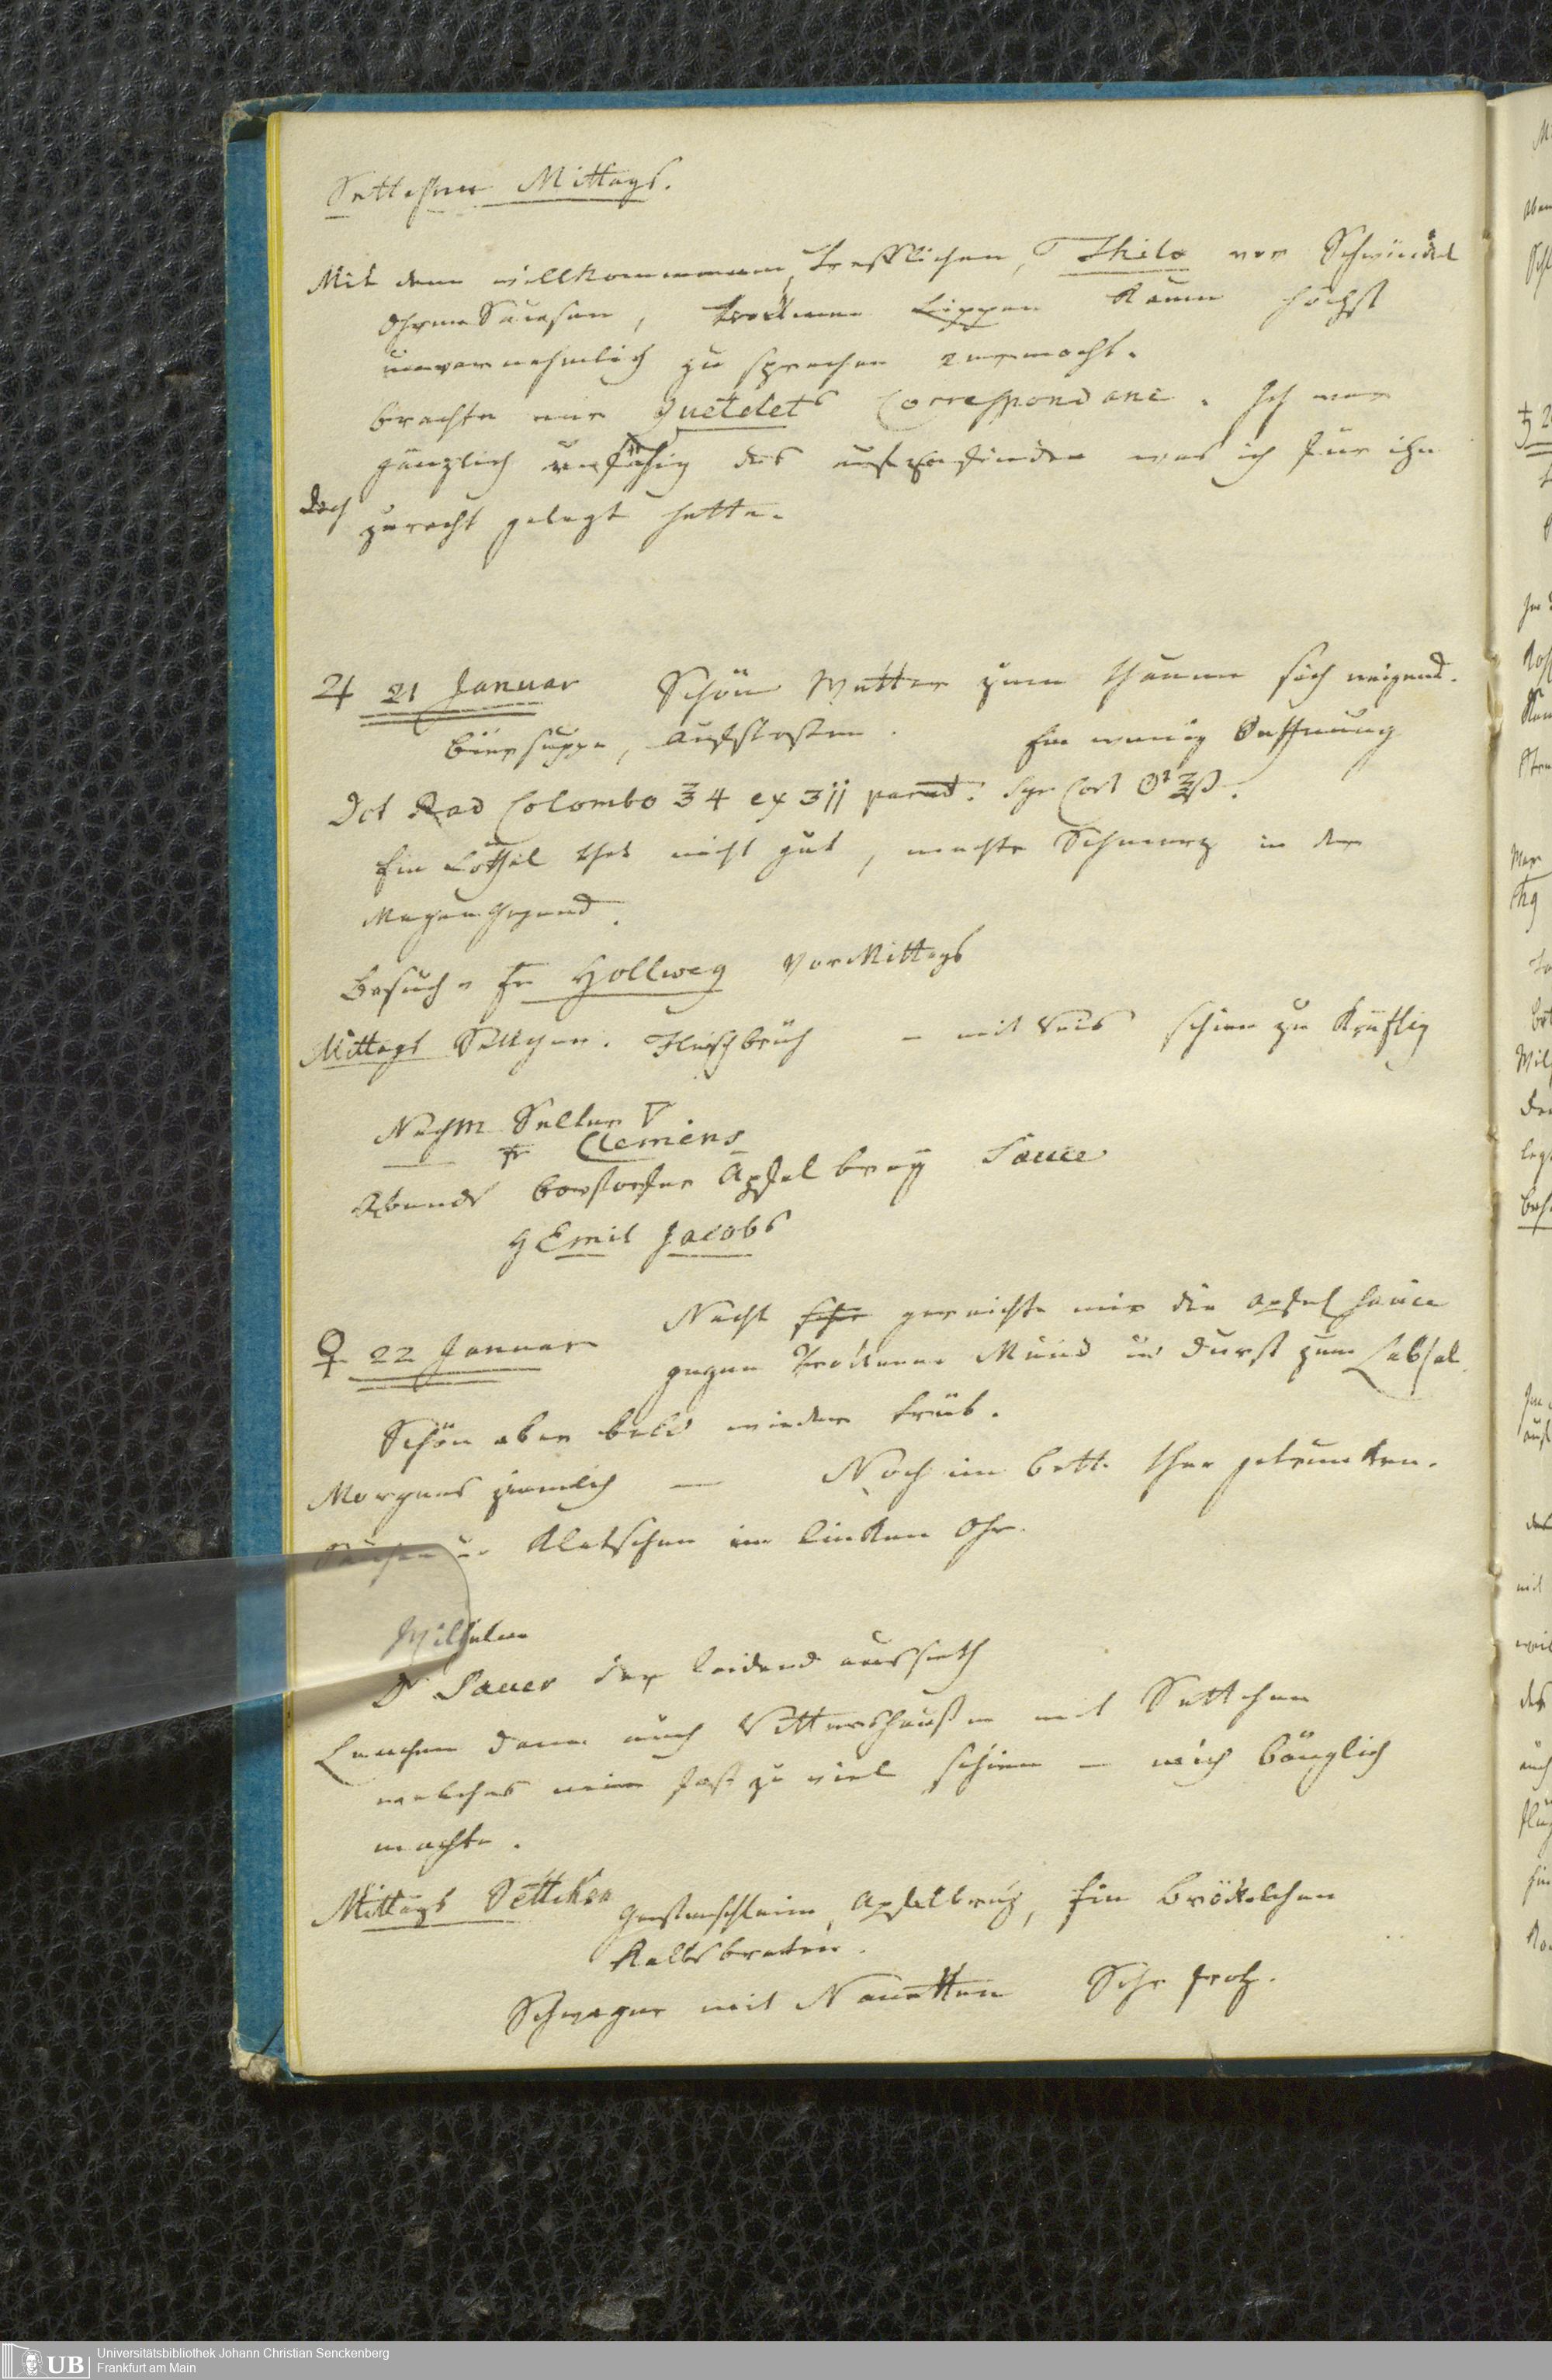 Settchen Mittags.
Mit dem willkommenen, trefflichen, Thilo vor Schwindel
Ohren Sausen, trockenen Lippen kaum höchst
unvernehmlich zu sprechen vermocht.
brachte mir Quetelets Correspondanc. Ich war
gänzlich unfähig das aufzufinden was ich für ihn
doch zurecht gelegt hatte.
♃ 21 Januar Schön Wetter zum thauen sich neigend.
Biersuppe, Aufstossen. Ein wenig Oeffnung
Dct Rad Colombo ℥4 ex ʒij parat. Syr Cort ℥ß.
Ein Löffel that nicht gut, machte Schmerz in der
Magen Gegend.
Besuch v Fr Hollweg VorMittags
Mittags Settchen. Fleischbrüh – mit Reis schien zu kräftig
NachM Selter ▽
Fr Clemens
Abends Borstorfer Apfel brey Sauce
H Emil Jacobs
♀ 22 Januar Nacht gereichte mir die Apfel Sauce
gegen trockenen Mund u Durst zum Labsal.
Schön aber bald wieder trüb.
Morgens ziemlich — Noch im Bett Thee getrunken.
Sausen u Klatschen im linken Ohr.
Wilhelm
Dr Sauer der leidend aussieth
Lenchen dann auch Rittershaussen mit Settchen
welches mir fast zu viel schien – mich bänglich
machte.
Mittags Settchen Gerstenschleim, Apfelbrey, Ein Bröckelchen
Kalbsbraten.
Schwager mit Nanetten Sehr froh.
UB Universitätsbibliothek Johann Christian Senckenberg
Frankfurt am Main